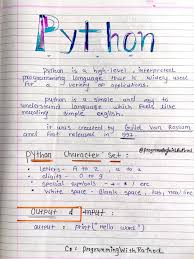 Python
python is a high-level, interpreted
programming language that is widely used
for a variety of applications.
python is a simple and easy to
understand language which feels like
reading simple english.
it was created by Guido Van Rossum
and first released in 1991
@programmingWithRathod
Python Character Set :
Letters - A to Z, a to z
digits - 0 to 9
special symbols - + - etc
White space - Blank space, tab, new line
OUTPUT & INPUT :
output : print ("Hello World")
Cc : programmingWithRathod